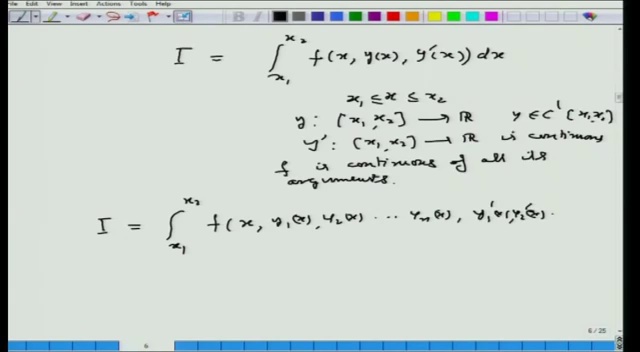 File Edit View Insert Actions Tools Help
I = ∫_{x₁}^{x₂} f(x, y(x), y'(x)) dx
x₁ ≤ x ≤ x₂
y : [x₁, x₂] → ℝ y ∈ C' [x₁, x₂]
y' : [x₁, x₂] → ℝ is continuous
f is continuous of all its
arguments.
I = ∫_{x₁}^{x₂} f(x, y₁(x), y₂(x) ... yₙ(x), y₁'(x), y₂'(x) .
6 / 25
6